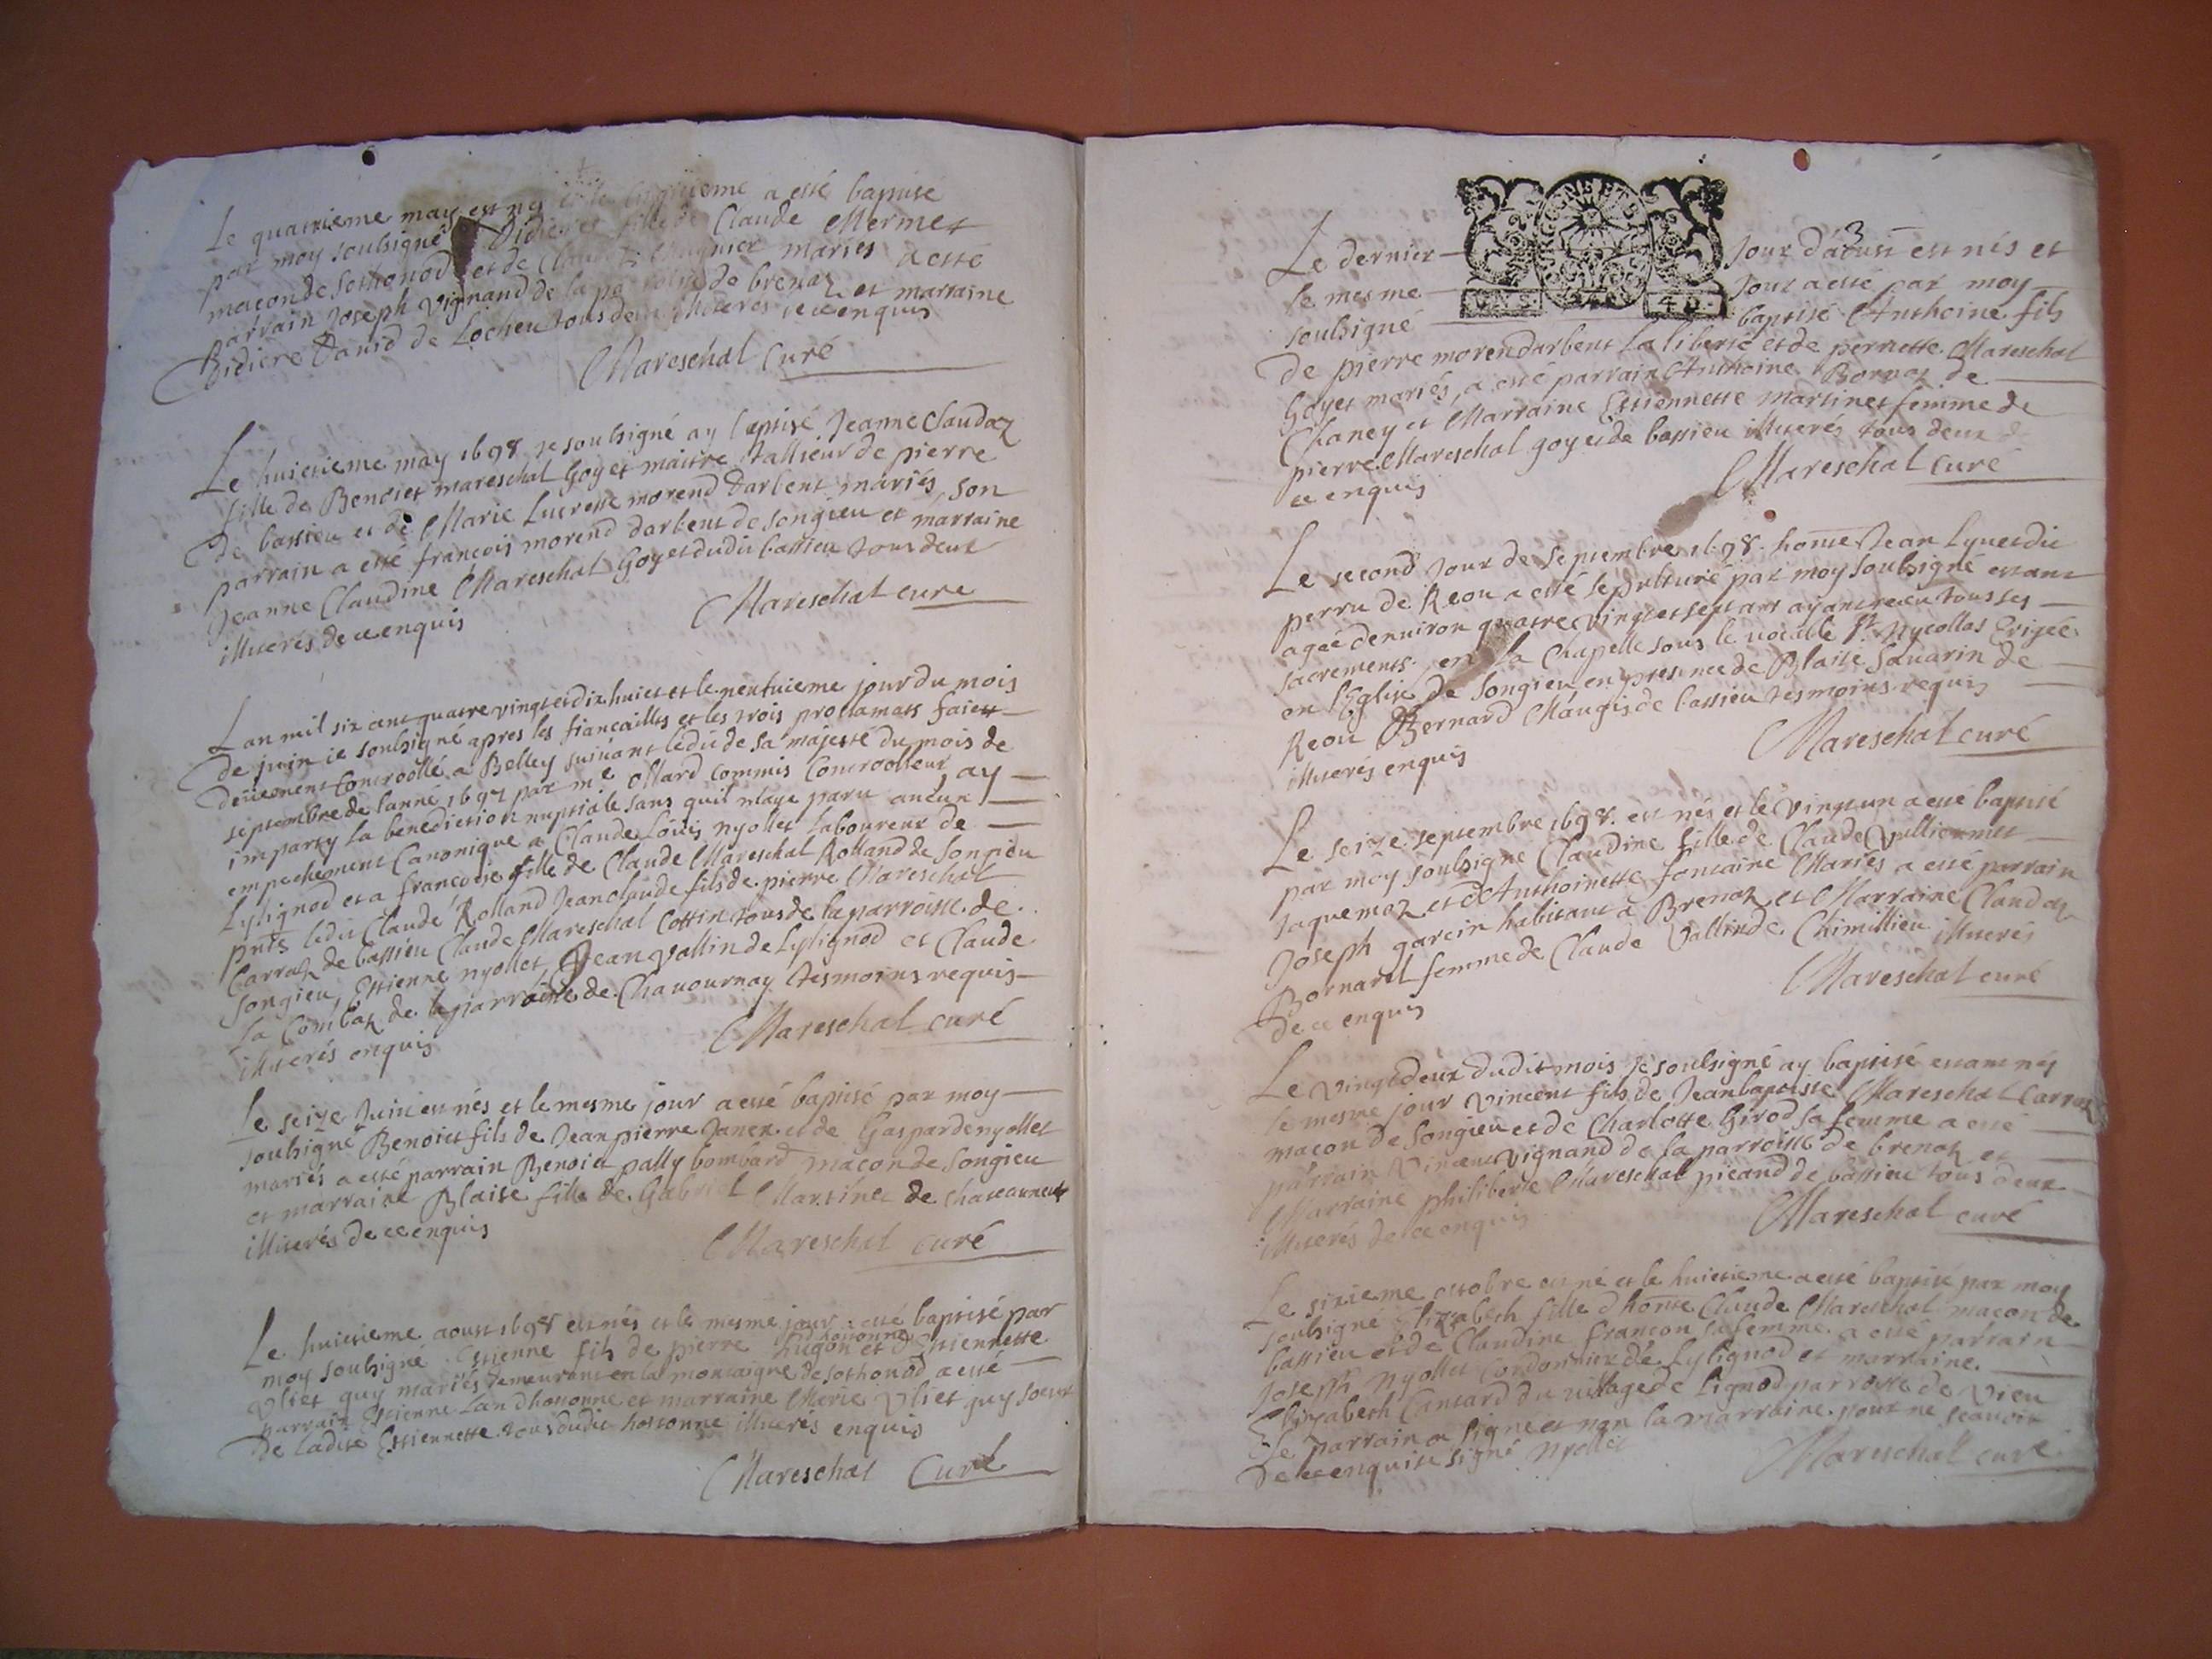 Le quatrieme may est nej et le cinquieme a esté baptisé
par moy soubsigné Didiere fille de Claude Mermet
macon de sothonod et de Claud Mugnier mariés a esté
parrain Joseph vignand de la parroisse de brenaz et marraine
Didiere Dauid de Locheu tous deux illiteres de ce enquis
Mareschal curé
Le huictieme may 1698 je soubsigné ay baptisé Jeanne Claudaz
fille de Benoict mareschal Goyet maitre tallieur de pierre
de bassieu et de Marie Lucresse morend darbent mariés son
parrain a esté françois morend darbent de songieu et marraine
Jeanne Claudine Mareschal Goyet dudit bassieu tous deux
illiterés de ce enquis
Mareschal cure
Lan mil six cent quatre vingt et dix huict et le neufuieme jour du mois
de juin je soubsigné apres les fiancailles et les trois proclamats faict
deüement controollé a Belley suiuant ledit de sa majesté du mois de
septembre de lanné 1697 par me Ollard commis controolleur ay
imparty la benediction nuptiale sans quil m'aye paru aucun
empechement Canonique a Claude Louis nyollet laboureur de
Lylignod et a francoise fille de Claude Mareschal Rolland de songieu
pnts ledit Claude Rolland Jean claude fils de pierre Mareschal
Carraz de bassieu Claude Mareschal Cottin tous de la parroisse de
songieu, Estienne nyollet, Jean vallin de Lylignod et Claude
La Combaz de la parroisse de Chauournay tesmoins requis
illiterés enquis
Mareschal curé
Le seize Juin est nés et le mesme jour a esté baptisé par moy
soubsigné Benoict fils de Jean pierre Janex et de Gasparde nyollet
mariés a esté parrain Benoict pally bombard macon de songieu
et marraine Blaise fille de Gabriel Martinet de chateauneuf
illiterés de ce enquis
Mareschal curé
Le huictieme aoust 1698 est nés et le mesme jour esté baptisé par
moy soubsigné Estienne fils de pierre Hugon dhostonne et dEstiennette
vliet guy mariés demeurant en la montaigne de sothonod a esté
parrain Estienne Lan dhostonne et marraine Marie vliet guy soeur
de ladite Estiennette tous dudit hostonne illiterés enquis
Mareschal Curé
3
Le dernier jour dâoust est nés et
le mesme jour a esté par moy
soubsigné baptisé Anthoine fils
de pierre morendarbent la liberté et de pernette Mareschal
Goyet mariés, a esté parrain Anthoine Borvaz de
Chaney et Marraine Estiennette Martinet femme de
pierre Mareschal goyet de bassieu illiterés tous deux de
ce enquis
Mareschal curé
Le second jour de septembre 1698. honte Jean Lyuet dit
perru de Reou a esté sepulturé par moy soubsigné estant
agée denuiron quatre vingt et sept ans ayant receu tous ses
sacrements en la Chapelle sous le vocable st Nycollas Erigée
en l'Eglise de Songieu en presence de Blaise Sauarin de
Reou Bernard Maugis de bassieu tesmoins requis
illiterés enquis
Mareschal curé
Le seize septembre 1698. est nés et le vingt un a esté baptisé
par moy soubsigne Claudine fille de Claude Vulliermet
Jaquemaz et d'Anthoinette fontaine Mariés a esté parrain
Joseph garcin habitant a Brenaz et Marraine Claudaz
Bornarel femme de Claude Vallin de Chimillieu illiterés
de ce enquis
Mareschal curé
Le vingt deux dudit mois je soubsigné ay baptisé estant nés
le mesme jour vincent fils de Jean baptiste Mareschal Carraz
macon de Songieu et de Charlotte Girod sa femme a esté
parrain Vincent vignand de la parroisse de brenaz et
Marraine philiberte Mareschal picand de bassieu tous deux
illiterés de ce enquis
Mareschal curé
Le sixieme octobre est né et le huictieme a esté baptisé par moy
soubsigné Elizabeth fille d honte Claude Mareschal macon de
bassieu et de Claudine francon sa femme a esté parrain
Joseph nyollet cordonnier de Lylignod et marraine
Elizabeth Cantard du village de Lignod parroisse de Vieu
Le parrain a signé et non la marraine pour ne scauoir
de ce enquise signé Nyollet
Mareschal curé